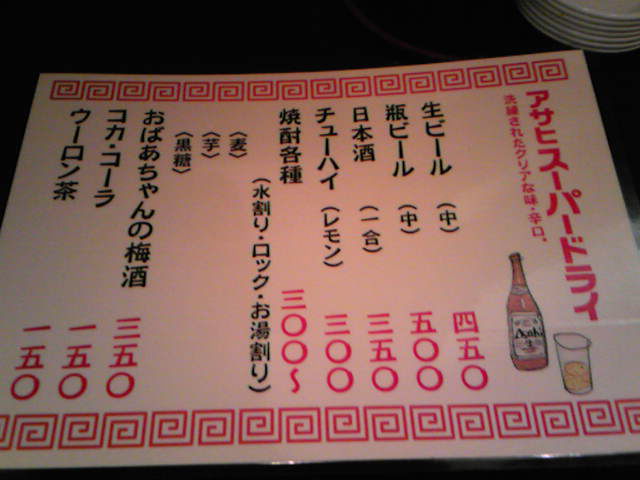 アサヒスーパードライ
洗練されたクリアな味・辛口。
Asahi
生ビール (中) 四五〇
瓶ビール (中) 五〇〇
日本酒 (一合) 三五〇
チューハイ (レモン) 三〇〇
焼酎各種 三〇〇〜
(水割り・ロック・お湯割り)
(麦)
(芋)
(黒糖)
おばあちゃんの梅酒 三五〇
コカ・コーラ 一五〇
ウーロン茶 一五〇